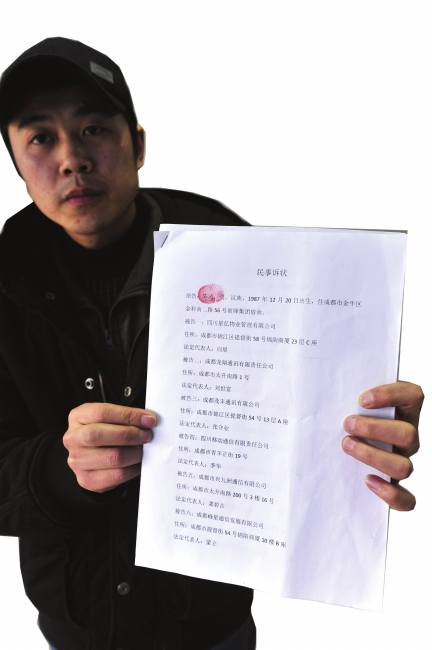 民事诉状
原告：男，汉族，1987年12月20日出生，住成都市金牛区
金科南二路56号前锋集团宿舍。
被告一：四川星亿物业管理有限公司
住所：成都市锦江区提督街58号锦阳商厦23层C座
法定代表人：向星
被告二：成都龙翔通讯有限责任公司
住所：成都市太升南路1号
法定代表人：刘世富
被告三：成都茂丰通讯有限公司
住所：成都市锦江区提督街54号13层A座
法定代表人：张守业
被告四：四川移动通信有限责任公司
住所：成都市青羊正街19号
法定代表人：李华
被告五：成都市兴九洲通信有限公司
住所：成都市太升南路200号3楼16号
法定代表人：
被告六：成都峰星通信发展有限公司
住所：成都市提督街54号锦阳商厦10楼B座
法定代表人：蒙立